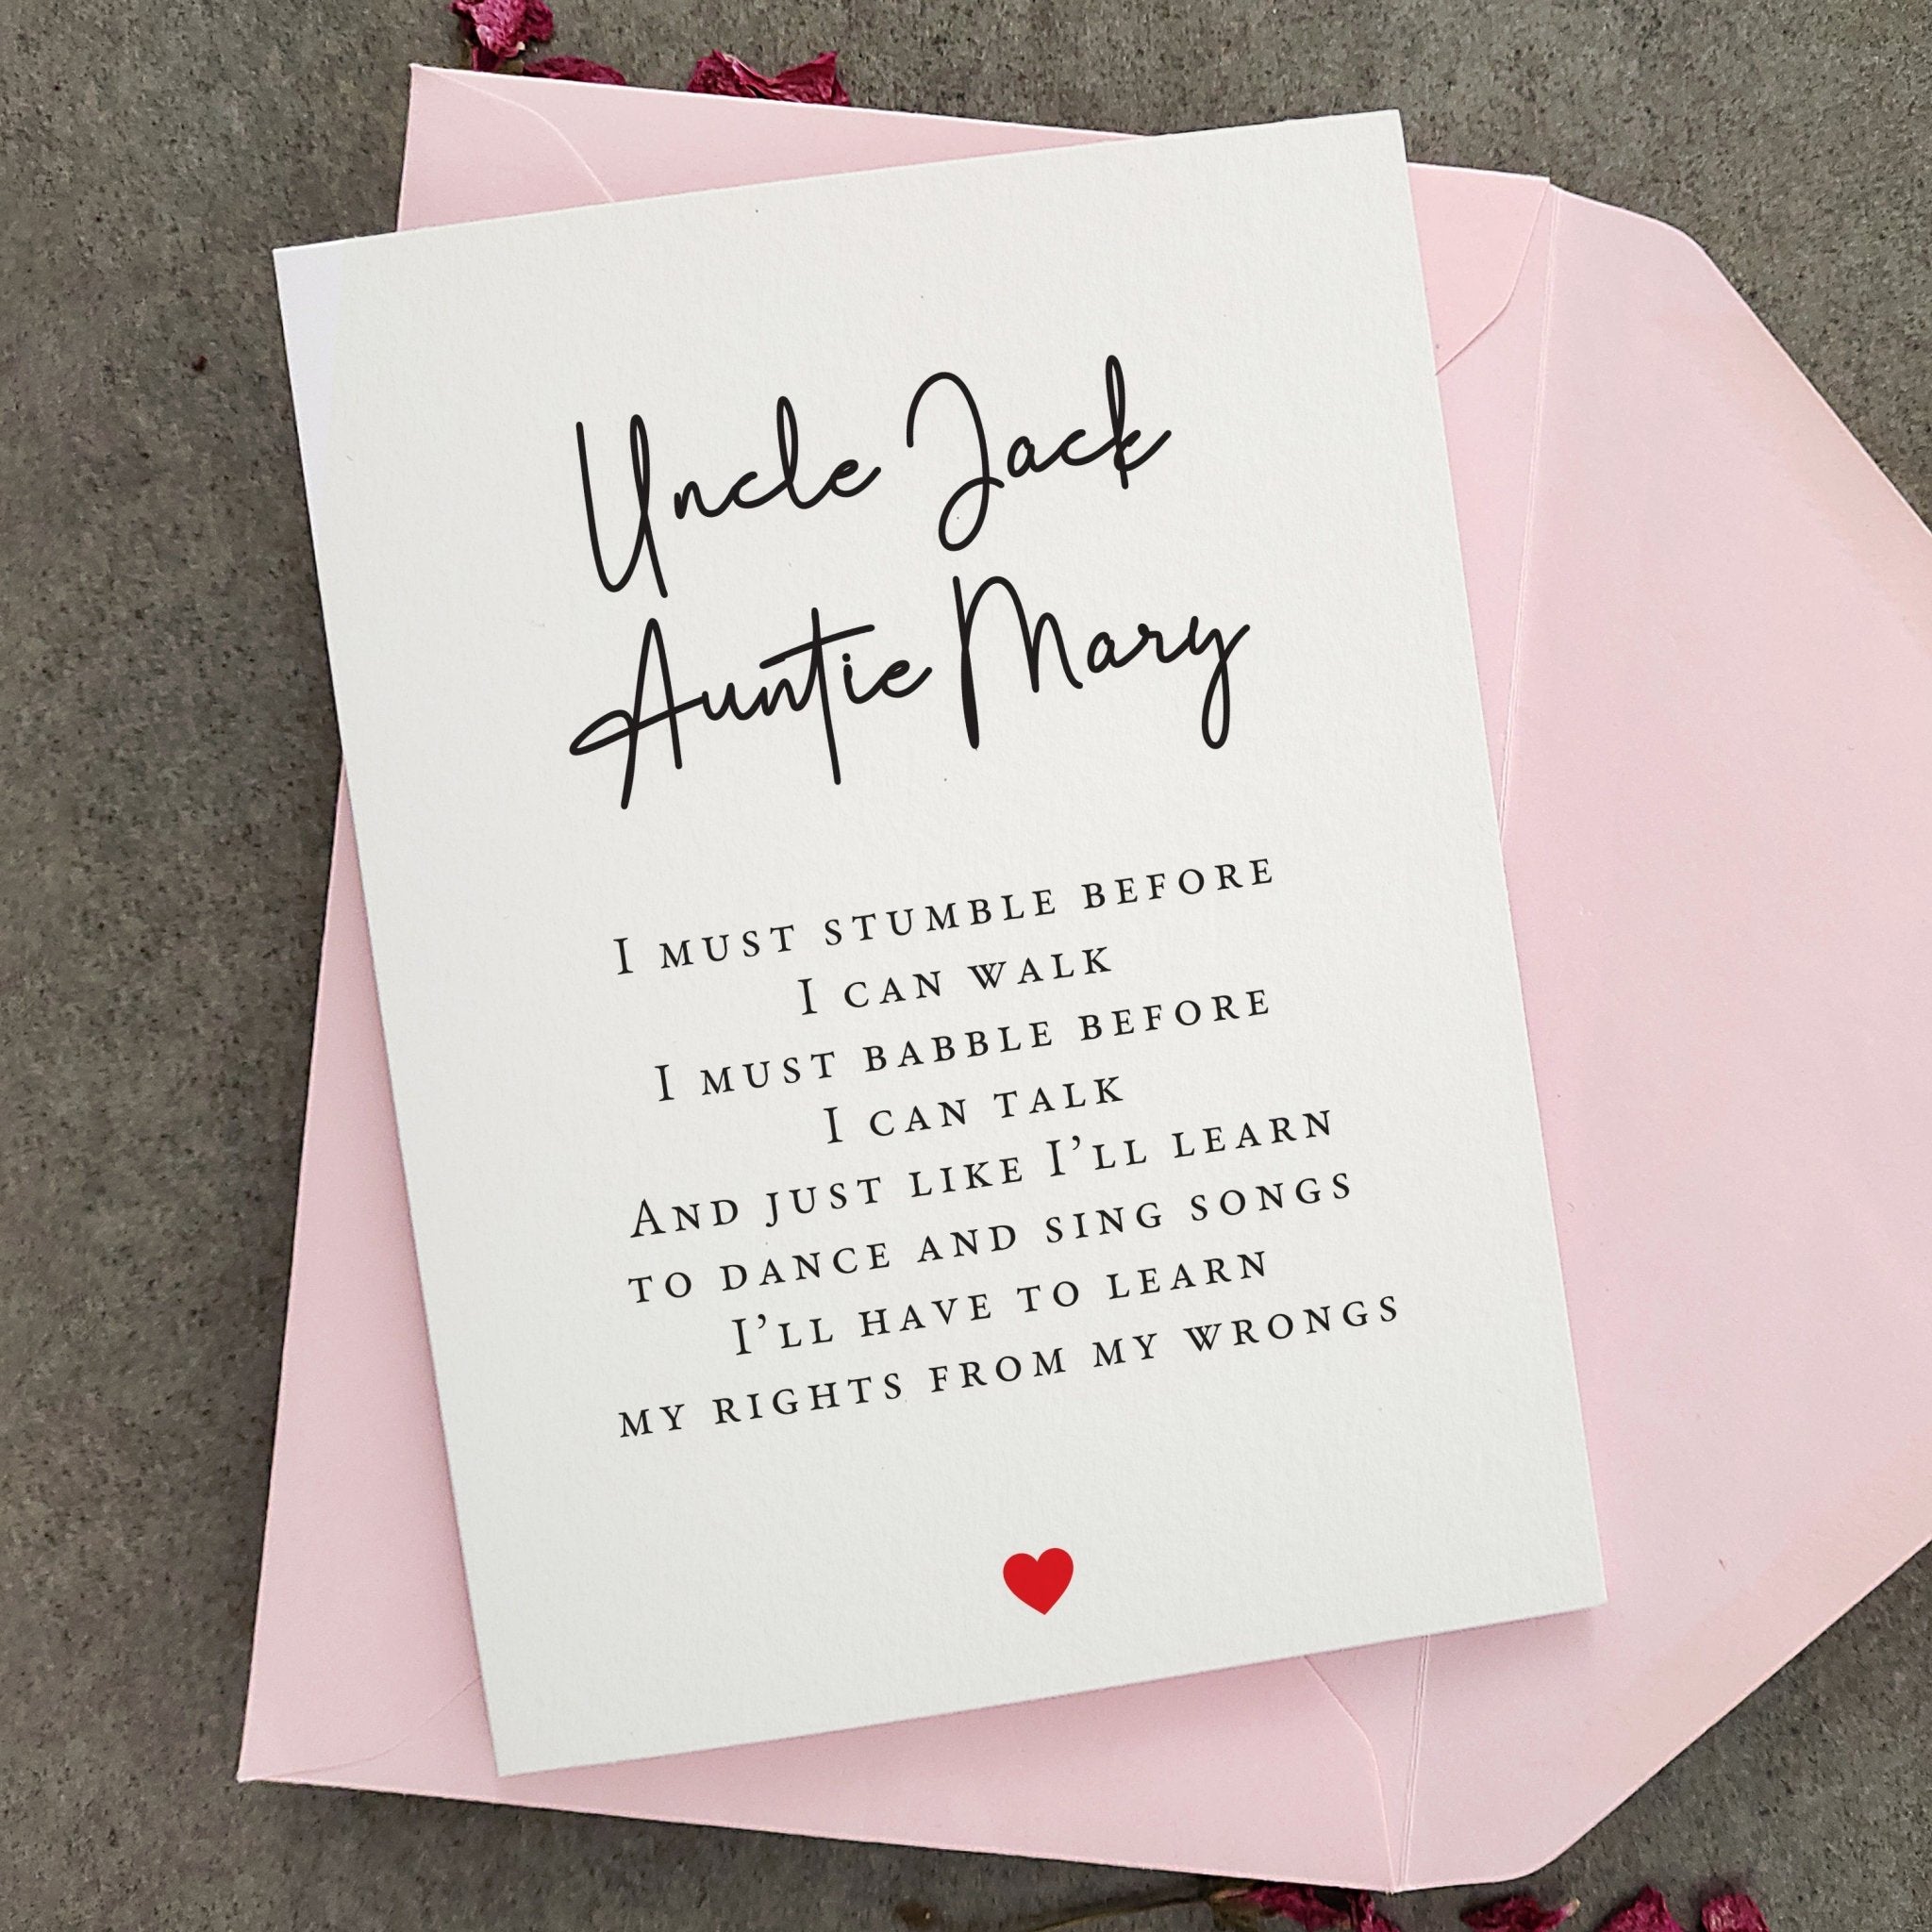 Uncle Jack
Auntie Mary
I must stumble before
I can walk
I must babble before
I can talk
And just like I'll learn
to dance and sing songs
I'll have to learn
my rights from my wrongs